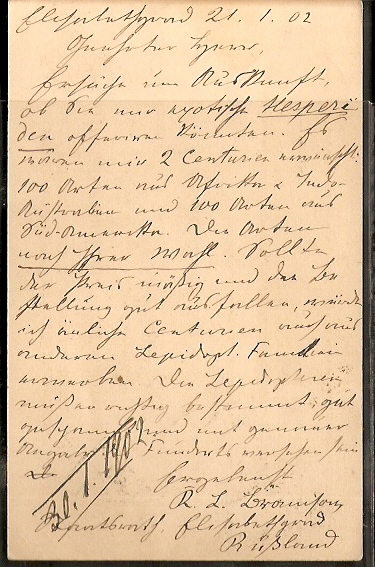 Elisabethgrad 21. 1. 02
Geehrter Herr,
Ersuche um Auskunft,
ob Sie mir exotische Hesperi
den offeriren könnten. Es
wären mir 2 Centurien erwünscht:
100 Arten aus Afrika & Indo-
Australien und 100 Arten aus
Süd-Amerika. Die Arten
nach Ihrer Wahl. Sollte
der Preis mäßig und die Be
stellung gut ausfallen, würde
ich ähnliche Centurien auch aus
anderen Lepidopt. Familien
erwerben. Die Lepidopteren
müßen richtig bestimmt, gut
gespannt und mit genauer
Angabe Fundorts versehen sein
30. 1. 1902
Ergebenst
R. L.
Elisabethgrad
Rußland